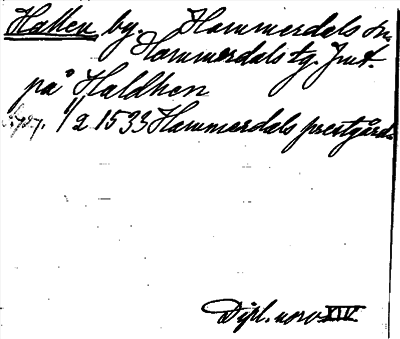 Hallen by. Hammerdals sn.
Hammerdals tg. Jmt.
på Haldhen
1/2 1533 Hammerdals prestgård.
Dipl. norv XIV.